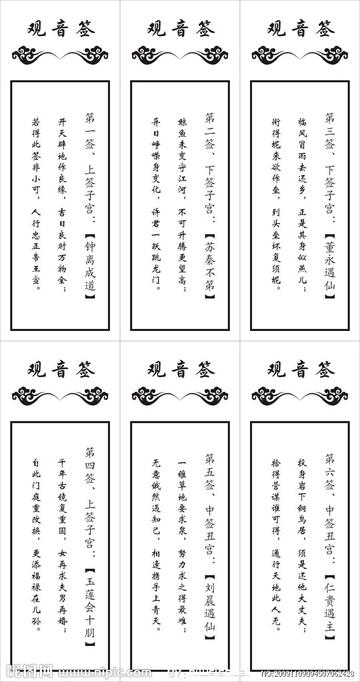 观音签
第一签、上签子宫：【钟离成道】
开天辟地作良缘，吉日良时万物全；
若得此签非小可，人行忠正帝王宣。
观音签
第二签、下签子宫：【苏秦不第】
鲸鱼未变守江河，不可升腾更望高；
异日峥嵘身变化，许君一跃跳龙门。
观音签
第三签、下签子宫：【董永遇仙】
临风冒雨去还乡，正是其身似燕儿；
衔得坭来欲作垒，到头垒坏复须坭。
观音签
第四签、上签子宫：【玉莲会十朋】
千年古镜复重圆，女再求夫男再婚；
自此门庭重改换，更添福禄在儿孙。
观音签
第五签、中签丑宫：【刘晨遇仙】
一锥草地要求泉，努力求之得最难；
无意俄然遇知己，相逢携手上青天。
观音签
第六签、中签丑宫：【仁贵遇主】
投身岩下铜鸟居，须是还他大丈夫；
拾得营谋谁可得，通行天地此人无。
昵图网
www.nipic.com